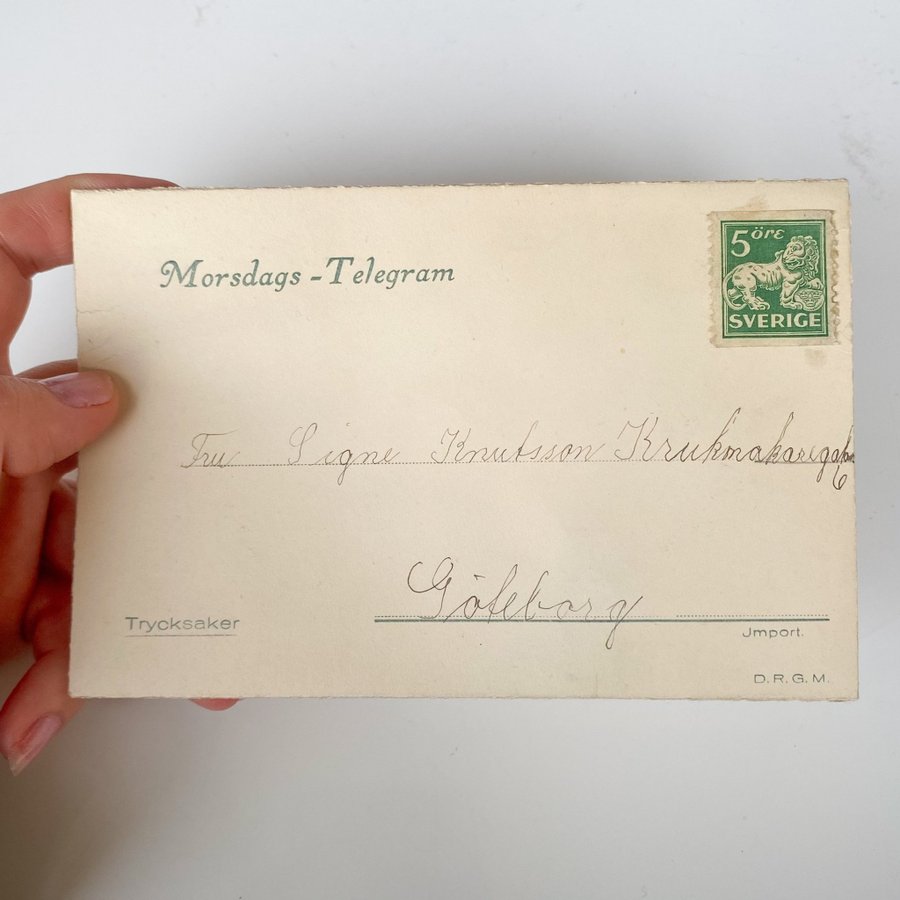 Morsdags - Telegram
5 öre
SVERIGE
Fru Signe Knutsson Krukmakaregatan
6
Göteborg
Trycksaker
Jmport.
D. R. G. M.